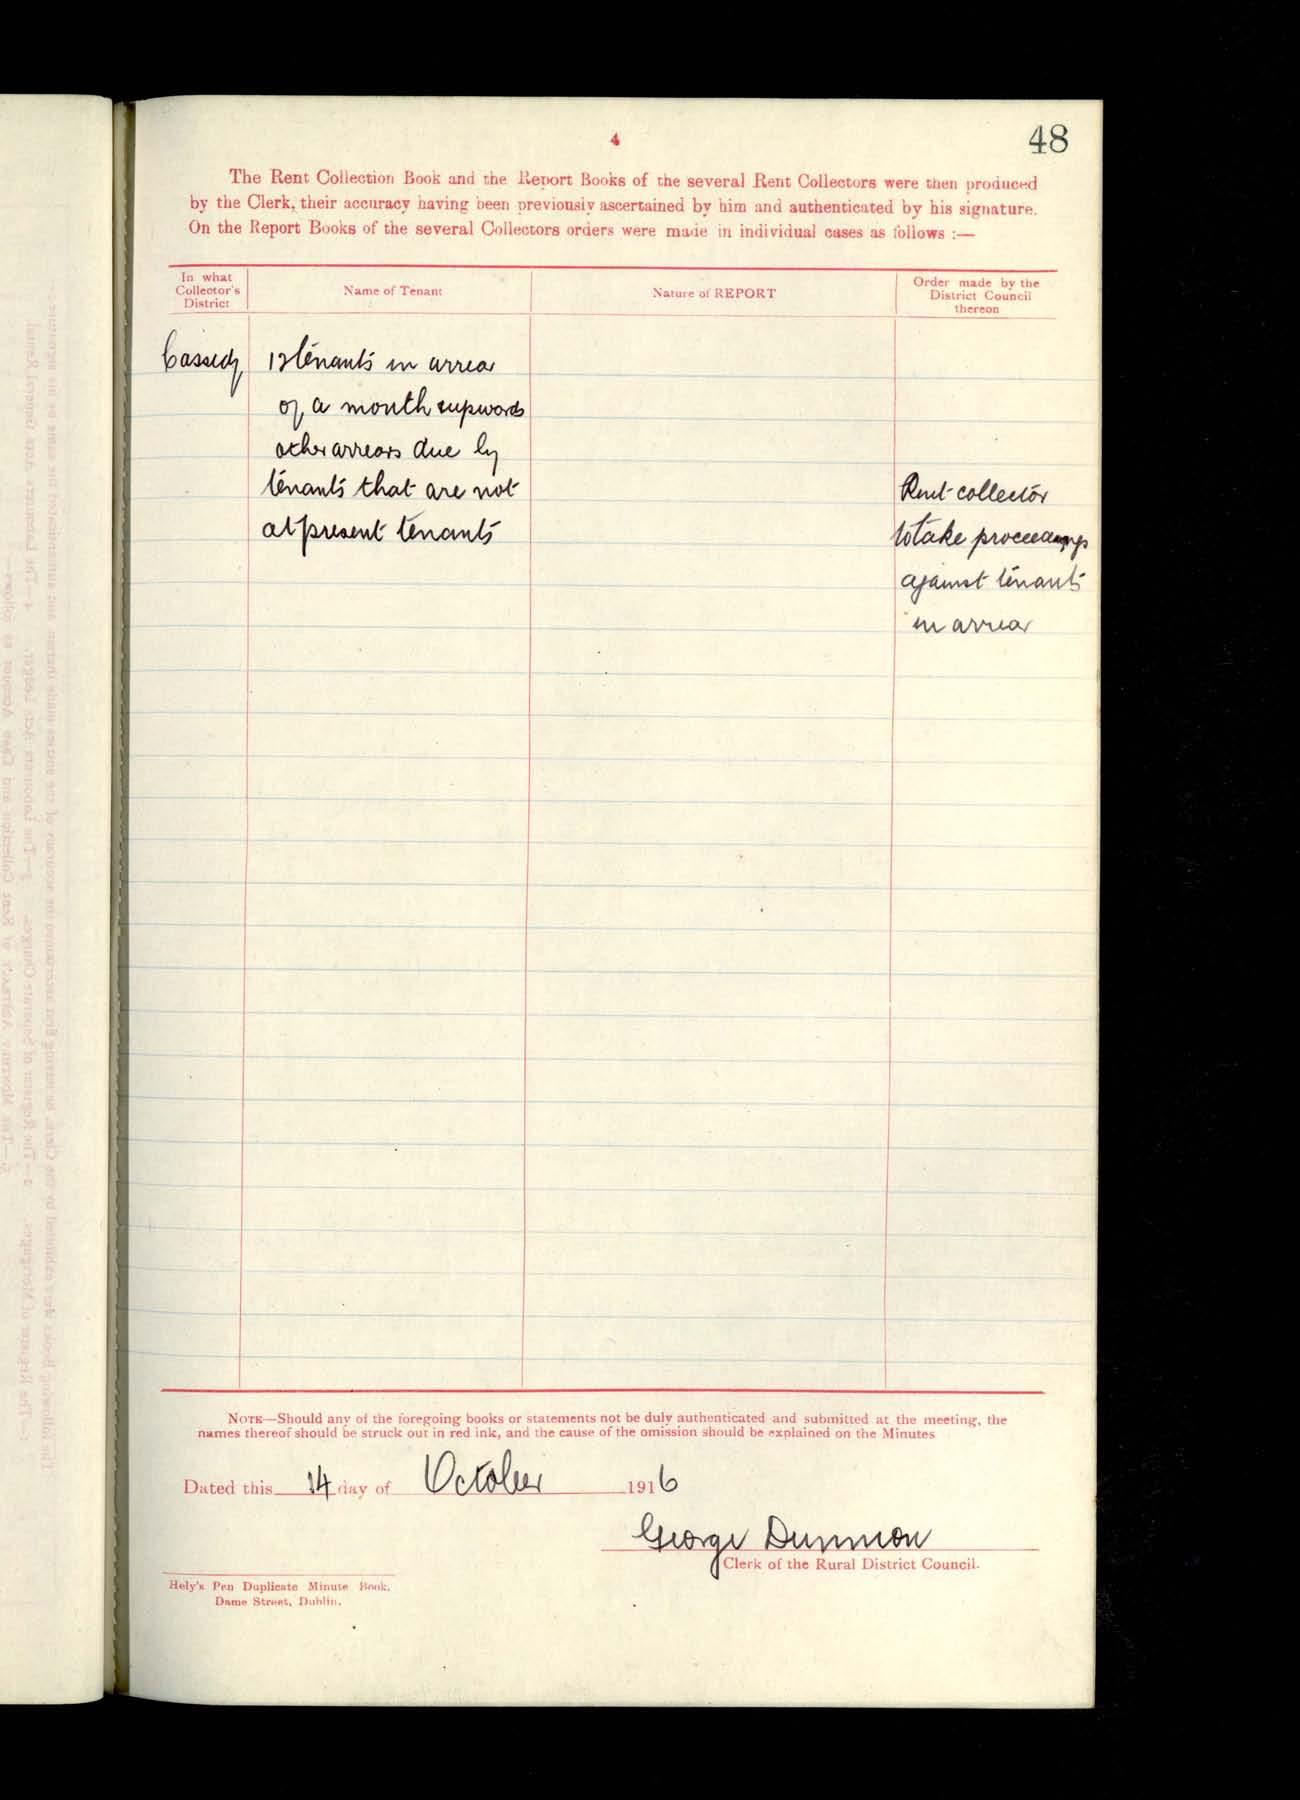 4
48
The Rent Collection Book and the Report Books of the several Rent Collectors were then produced
by the Clerk, their accuracy having been previously ascertained by him and authenticated by his signature.
On the Report Books of the several Collectors orders were made in individual cases as follows :—
In what Collector's District
Name of Tenant
Nature of REPORT
Order made by the District Council thereon
Cassidy
12 tenants in arrear
of a month & upwards
other arrears due by
tenants that are not
at present tenants
Rent collector
to take proceedings
against tenants
in arrear
NOTE—Should any of the foregoing books or statements not be duly authenticated and submitted at the meeting, the
names thereof should be struck out in red ink, and the cause of the omission should be explained on the Minutes
Dated this 14 day of October 1916
George
Clerk of the Rural District Council.
Hely's Pen Duplicate Minute Book,
Dame Street, Dublin.